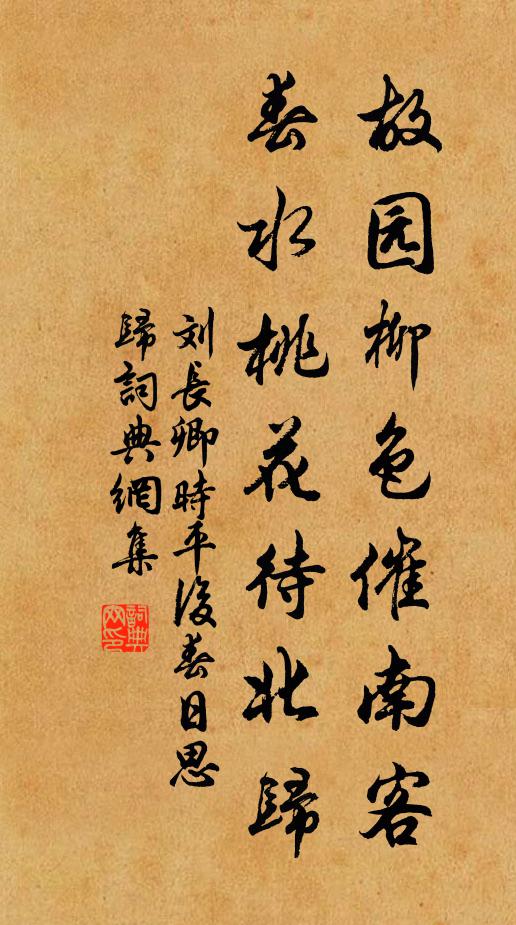 故园柳色催南客
春水桃花待北歸
刘長卿時平後春日思
歸詞典網集
詞典网印